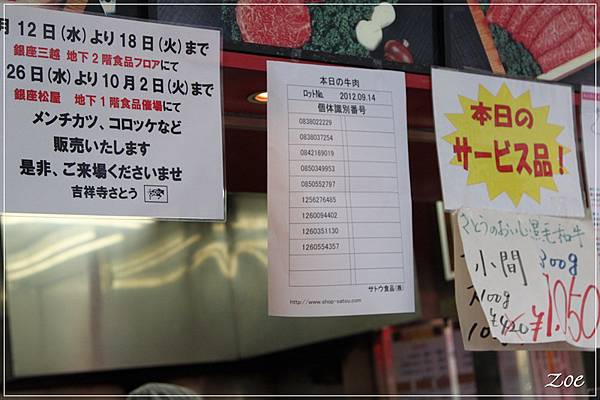 月12日(水)より18日(火)まで
銀座三越 地下2階食品フロアにて
26日(水)より10月2日(火)まで
銀座松屋 地下1階食品催場にて
メンチカツ、コロッケなど
販売いたします
是非、ご来場くださいませ
吉祥寺さとう
本日の牛肉
ロットNo. 2012.09.14
個体識別番号
0838022229
0838037254
0842169019
0850349953
0850552797
1256276485
1260094402
1260351130
1260554357
サトウ食品(株)
http://www.shop-satou.com/
本日の
サービス品!
さとうのおいしい黒毛和牛
小間 300g
100g
¥420
¥1,050
Zoe